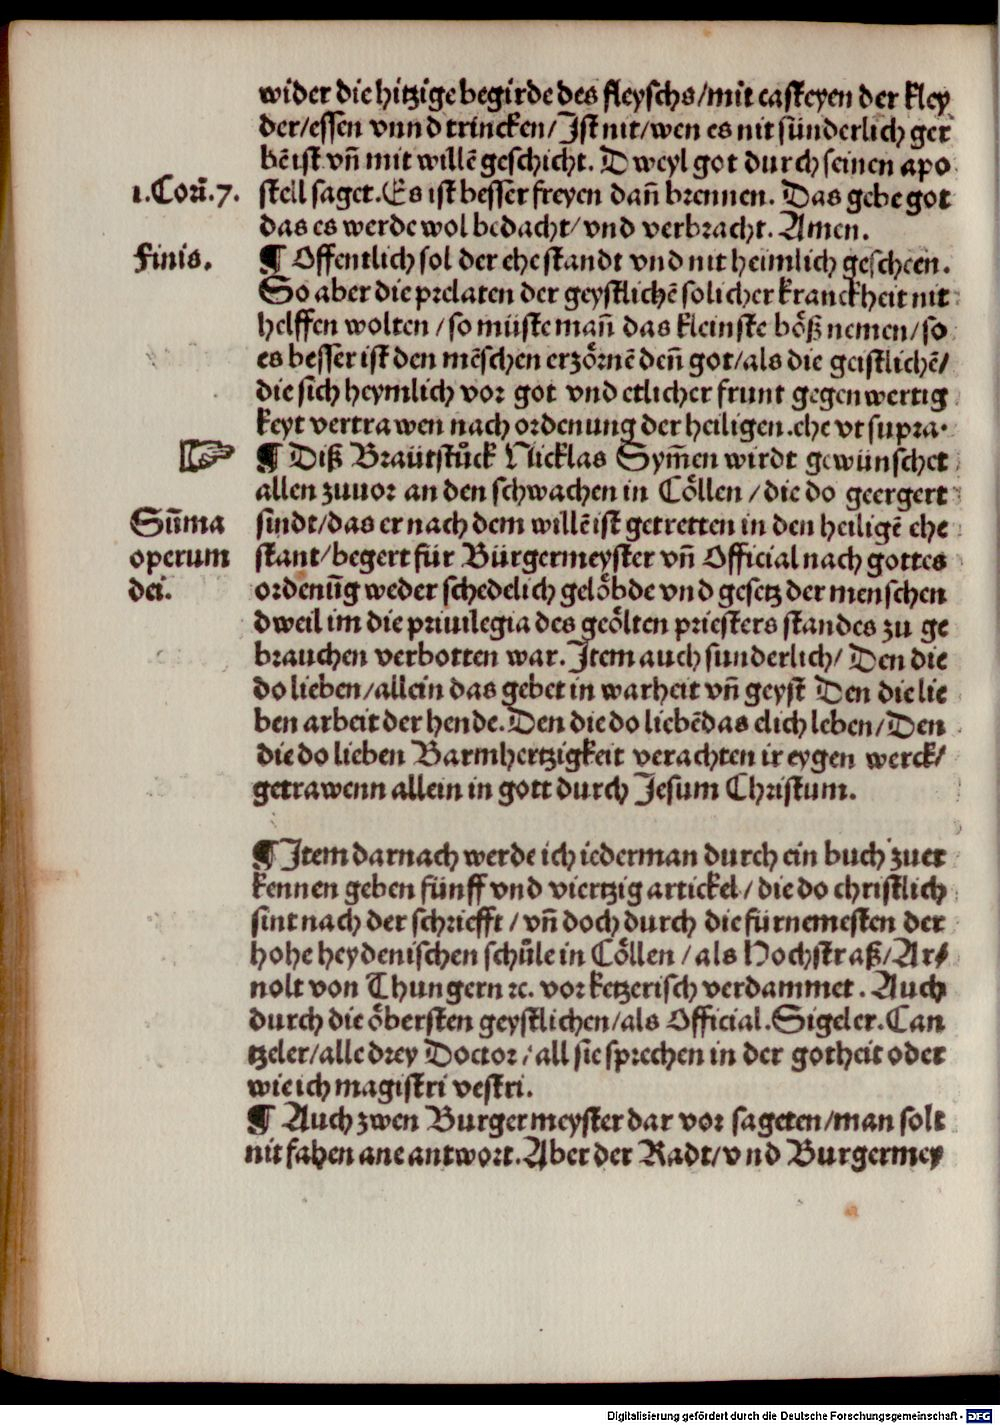 wider die hitzige begirde des fleyschs/mit casteyen der kley
der/essen vnnd trincken/Jst nit/wen es nit sünderlich ger
bēist vn̄ mit willē geschicht. Dweyl got durch seinen apo
1.Corī.7. stell saget.Es ist besser freyen dan̄ brennen. Das gebe got
das es werde wol bedacht/vnd verbracht. Amen.
Finis. ¶ Offentlich sol der ehe standt vnd nit heimlich gescheen.
So aber die prelaten der geystlichē solicher kranckheit nit
helffen wolten/so müste man̄ das kleinste bößnemen/so
es besser ist den mēschen erzörnē den̄ got/als die geistlichē/
die sich heymlich vor got vnd etlicher frunt gegenwertig
keyt vertrawen nach ordenung der heiligen.ehe vt supra.
☞ ¶ Diß Braütstůck Nicklas Sym̄en wirdt gewünschet
allen zuuor an den schwachen in Cöllen/die do geergert
Sūma sindt/das er nach dem willē ist getretten in den heiligē ehe
operum stant/begert für Bürgermeyster vn̄ Official nach gottes
dei. ordenūg weder schedelich gelöbde vnd gesetz der menschen
dweil im die priuilegia des geölten priesters standes zu ge
brauchen verbotten war. Jtem auch sunderlich/ Den die
do lieben/allein das gebet in warheit vn̄ geyst Den die lie
ben arbeit der hende.Den die do liebē das elich leben/Den
die do lieben Barmhertzigkeit verachten ir eygen werck/
getrawenn allein in gott durch Jesum Christum.
¶ Jtem darnach werde ich iederman durch ein buch zuer
kennen geben fünff vnd viertzig artickel/die do christlich
sint nach der schriefft/vn̄ doch durch die fürnemesten der
hohe heydenischen schůle in Cöllen/als Hochstraß/Ar⸗
nolt von Thungern ꝛc. vor ketzerisch verdammet. Auch
durch die öbersten geystlichen/als Official.Sigeler.Can
tzeler/alle drey Doctor/all sie sprechen in der gotheit oder
wie ich magistri vestri.
¶ Auch zwen Burgermeyster dar vor sageten/man solt
nit fahen ane antwort.Aber der Radt/vnd Burgermey
Digitalisierung gefördert durch die Deutsche Forschungsgemeinschaft - DFG